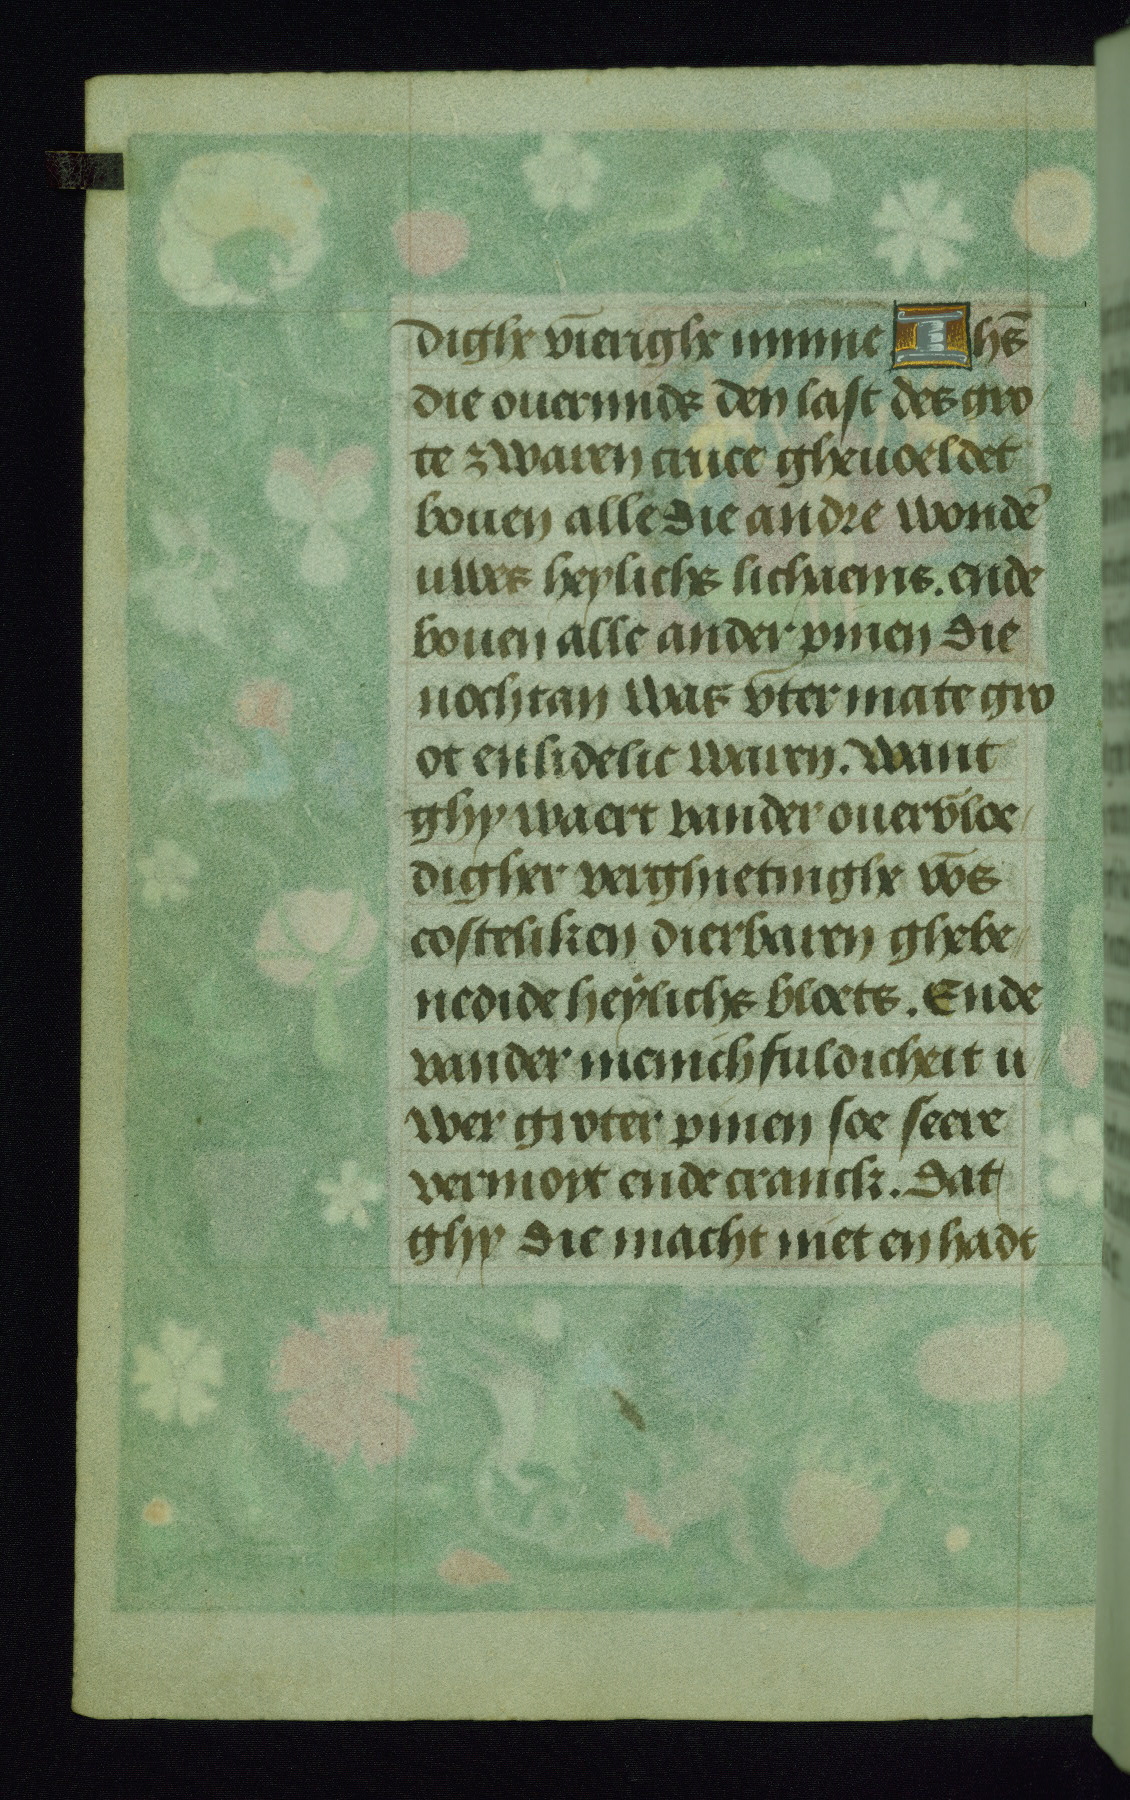 dighe vierighe minne Ihs̄
die ouermids den last des gro
te zwaren cruce gheuoeldet
bouen alle die andre wondē
uwes heylichs lichaems. ende
bouen alle ander pinen die
nochtan was v̄ter mate gro
ot en lidelic waren. Want
ghy waert vander ouerv̄loe
digher verghietinghe v̄s
costeliken dierbaren ghebe
nedide heylichs bloets. Ende
vander menichfuldicheit u
wer groter pinen soe seere
vermoyt ende cranck. dat
ghy die macht niet en hadt